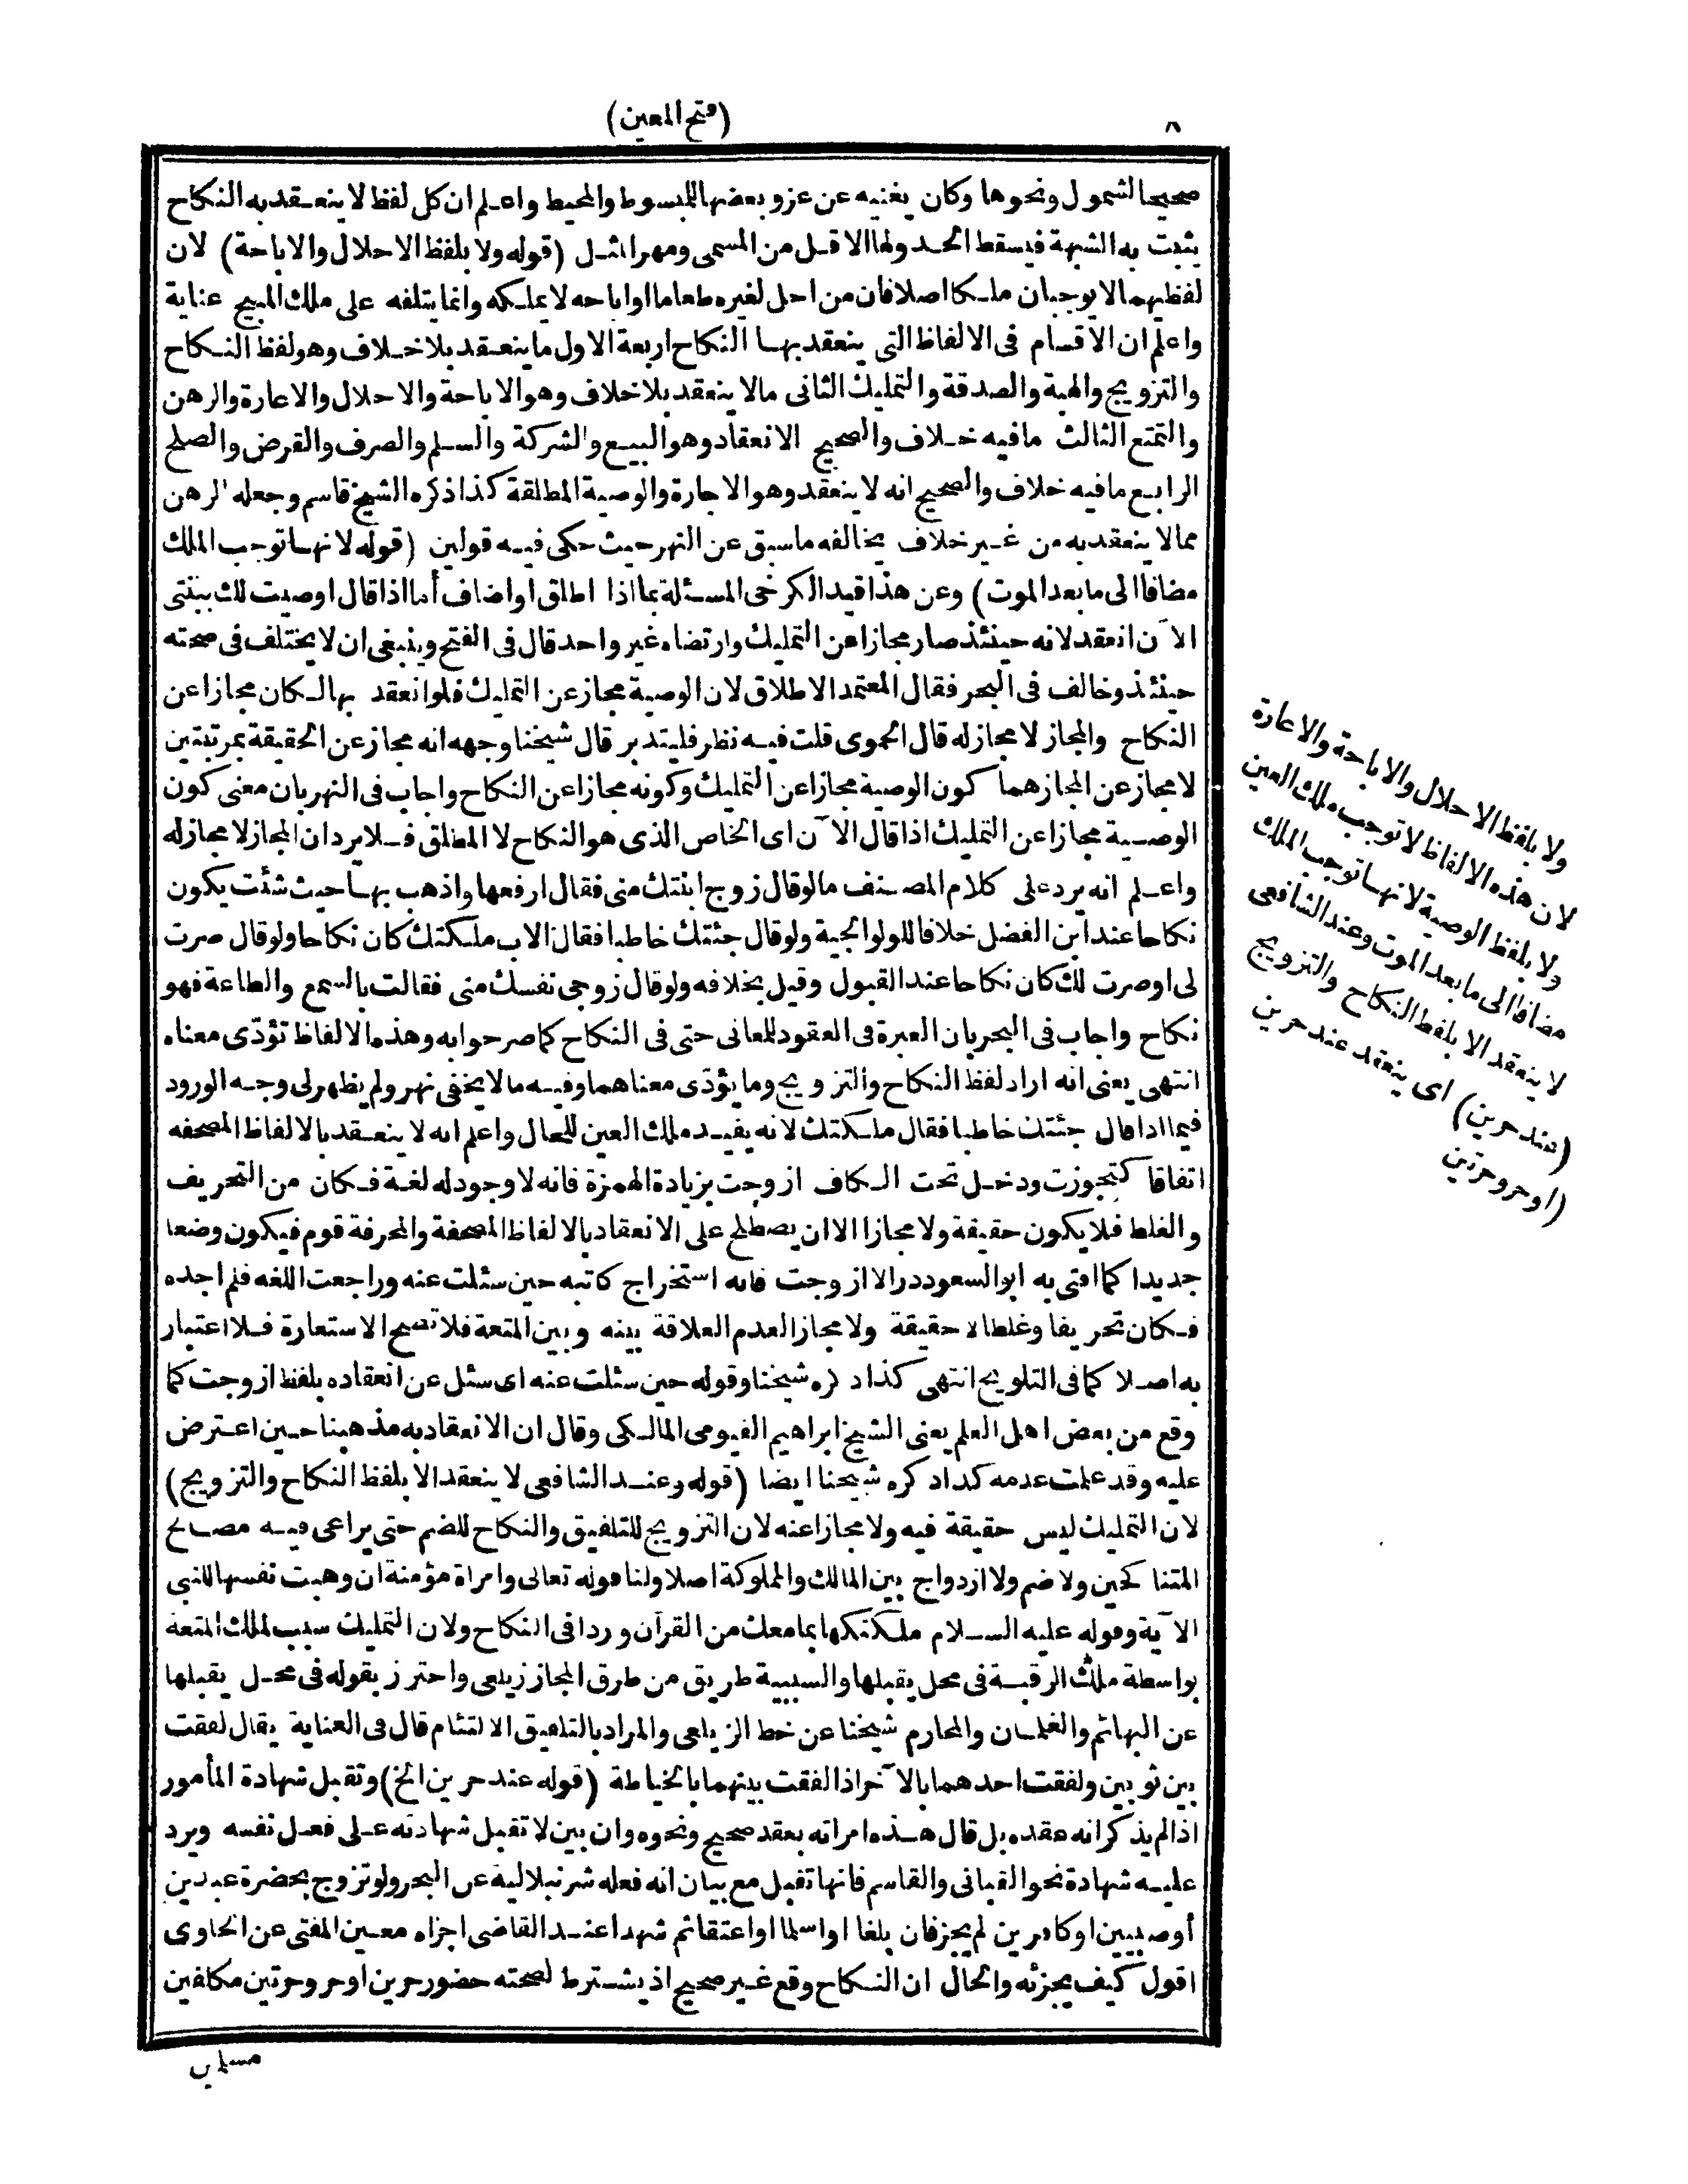 ٨
(فتح المعين)
صحيحا لشمول ونحوها وكان يغنيه عن عزو بعضها للمبسوط والمحيط واعلم ان كل لفظ لا ينعقد به النكاح
يثبت به الشبهة فيسقط الحد ولها الاقل من المسمى ومهر المثل (قوله ولا بلفظ الاحلال والاباحة) لان
لفظيهما لا يوجبان ملكا اصلا فان من احل لغيره طعاما او اباحه لا يملكه وانما يتلفه على ملك المبيح عناية
واعلم ان الاقسام فى الالفاظ التى ينعقد بها النكاح اربعة الاول ما ينعقد بلا خلاف وهو لفظ النكاح
والتزويج والهبة والصدقة والتمليك الثانى مالا ينعقد بلا خلاف وهو الاباحة والاحلال والاعارة والرهن
والتمتع الثالث مافيه خلاف والصحيح الانعقاد وهو البيع والشركة والسلم والصرف والقرض والصلح
الرابع مافيه خلاف والصحيح انه لا ينعقد وهو الاجارة والوصية المطلقة كذا ذكره الشيخ قاسم وجعله الرهن
مما لا ينعقد به من غير خلاف يخالفه ما سبق عن النهر حيث حكى فيه قولين (قوله لانها توجب الملك
مضافا الى ما بعد الموت) وعن هذا قيد الكرخى المسئلة بما اذا اطلق او اضاف أما اذا قال اوصيت لك ببنتى
الآن انعقد لانه حينئذ صار مجازا عن التمليك وارتضاه غير واحد قال فى الفتح وينبغى ان لا يختلف فى صحته
حينئذ وخالف فى البحر فقال المعتمد الاطلاق لان الوصية مجاز عن التمليك فلو انعقد بها لكان مجازا عن
النكاح والمجاز لا مجاز له قال الحموى قلت فيه نظر فليتدبر قال شيخنا وجهه انه مجاز عن الحقيقة بمرتبتين
لا مجاز عن المجاز هما كون الوصية مجازا عن التمليك وكونه مجازا عن النكاح واجاب فى النهر بان معنى كون
الوصية مجازا عن التمليك اذا قال الآن اى الخاص الذى هو النكاح لا المطلق فلا يرد ان المجاز لا مجاز له
واعلم انه يرد على كلام المصنف ما لو قال زوج ابنتك منى فقال ارفعها واذهب بها حيث شئت يكون
نكاحا عند ابن الفضل خلافا للولوالجية ولو قال جئتك خاطبا فقال الاب ملكتك كان نكاحا ولو قال صرت
لى او صرت لك كان نكاحا عند القبول وقيل بخلافه ولو قال زوجى نفسك منى فقالت بالسمع والطاعة فهو
نكاح واجاب فى البحر بان العبرة فى العقود للمعانى حتى فى النكاح كما صرحوا به وهذه الالفاظ تؤدّى معناه
انتهى يعنى انه اراد لفظ النكاح والتزويج وما يؤدّى معناهما وفيه مالا يخفى نهر ولم يظهر لى وجه الورود
فيما اذا قال جئتك خاطبا فقال ملكتك لانه يفيد ملك العين للحال واعلم انه لا ينعقد بالالفاظ المصحفة
اتفاقا كتجوزت ودخل تحت الكاف ازوجت بزيادة الهمزة فانه لا وجود له لغة فكان من التحريف
والغلط فلا يكون حقيقة ولا مجازا الا ان يصطلح على الانعقاد بالالفاظ المصحفة والمحرفة قوم فيكون وضعا
جديدا كما افتى به ابو السعود در الا ازوجت فانه استخراج كاتبه حين سئلت عنه وراجعت اللغه فلم اجده
فكان تحريفا وغلطا لا حقيقة ولا مجازا لعدم العلاقة بينه وبين المتعة فلا تصح الاستعارة فلا اعتبار
به اصلا كما فى التلويح انتهى كذا ذكره شيخنا وقوله حين سئلت عنه اى سئل عن انعقاده بلفظ ازوجت كما
وقع من بعض اهل العلم يعنى الشيخ ابراهيم الفيومى المالكى وقال ان الانعقاد به مذهبنا حين اعترض
عليه وقد علمت عدمه كذا ذكره شيخنا ايضا (قوله وعند الشافعى لا ينعقد الا بلفظ النكاح والتزويج)
لان التمليك ليس حقيقة فيه ولا مجازا عنه لان التزويج للتلفيق والنكاح للضم حتى يراعى فيه مصالح
المتناكحين ولا ضم ولا ازدواج بين المالك والمملوكة اصلا ولنا قوله تعالى وامراة مؤمنة ان وهبت نفسها للنبى
الآية وقوله عليه السلام ملكتكها بما معك من القرآن وردا فى النكاح ولان التمليك سبب لملك المتعة
بواسطة ملك الرقبة فى محل يقبلها والسببية طريق من طرق المجاز زيلعى واحترز بقوله فى محل يقبلها
عن البهائم والغلمان والمحارم شيخنا عن خط الزيلعى والمراد بالتلفيق الالتئام قال فى العناية يقال لفقت
بين ثوبين ولفقت احدهما بالآخر اذا لفقت بينهما بالخياطة (قوله عند حرين الخ) وتقبل شهادة المأمور
اذا لم يذكر انه عقده بل قال هذه امراته بعقد صحيح ونحوه وان بين لا تقبل شهادته على فعل نفسه ويرد
عليه شهادة نحو القبانى والقاسم فانها تقبل مع بيان انه فعله شرنبلالية عن البحر ولو تزوج بحضرة عبدين
أو صبيين او كافرين لم يجز فان بلغا او اسلما او اعتقا ثم شهدا عند القاضى اجزاه معين المفتى عن الحاوى
اقول كيف يجزئه والحال ان النكاح وقع غير صحيح اذ يشترط لصحته حضور حرين او حر وحرتين مكلفين
ولا بلفظ الاحلال والاباحة والاعارة
لان هذه الالفاظ لا توجب ملك العين
ولا بلفظ الوصية لانها توجب الملك
مضافا الى ما بعد الموت وعند الشافعى
لا ينعقد الا بلفظ النكاح والتزويج
(عند حرين) اى ينعقد عند حرين
(او حر وحرتين
مسلمين